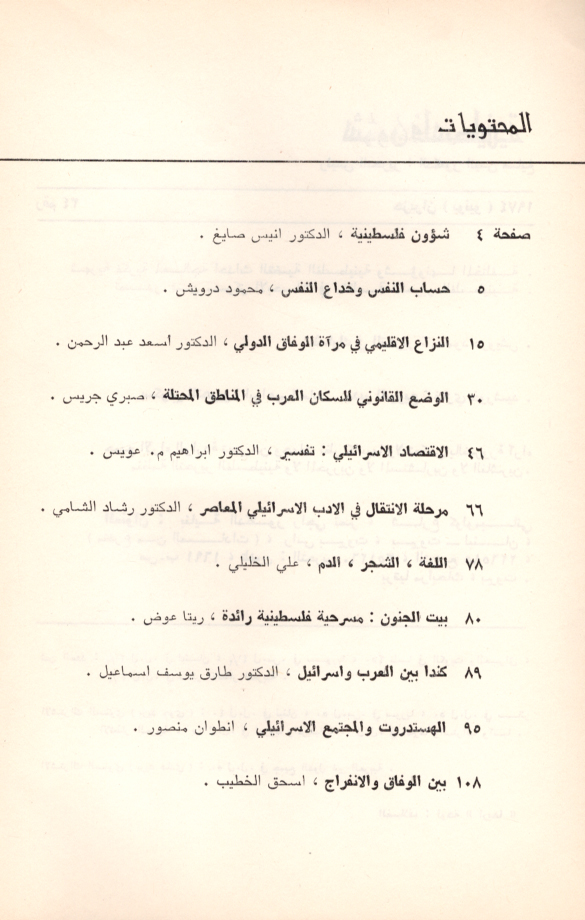 المحتويات
صفحة ٤ شؤون فلسطينية ، الدكتور انيس صايغ .
٥ حساب النفس وخداع النفس ، محمود درويش .
١٥ النزاع الاقليمي في مرآة الوفاق الدولي ، الدكتور اسعد عبد الرحمن .
٣٠ الوضع القانوني للسكان العرب في المناطق المحتلة ، صبري جريس .
٤٦ الاقتصاد الاسرائيلي : تفسير ، الدكتور ابراهيم م. عويس .
٦٦ مرحلة الانتقال في الادب الاسرائيلي المعاصر ، الدكتور رشاد الشامي .
٧٨ اللغة ، الشجر ، الدم ، علي الخليلي .
٨٠ بيت الجنون : مسرحية فلسطينية رائدة ، ريتا عوض .
٨٩ كندا بين العرب واسرائيل ، الدكتور طارق يوسف اسماعيل .
٩٥ الهستدروت والمجتمع الاسرائيلي ، انطوان منصور .
١٠٨ بين الوفاق والانفراج ، اسحق الخطيب .